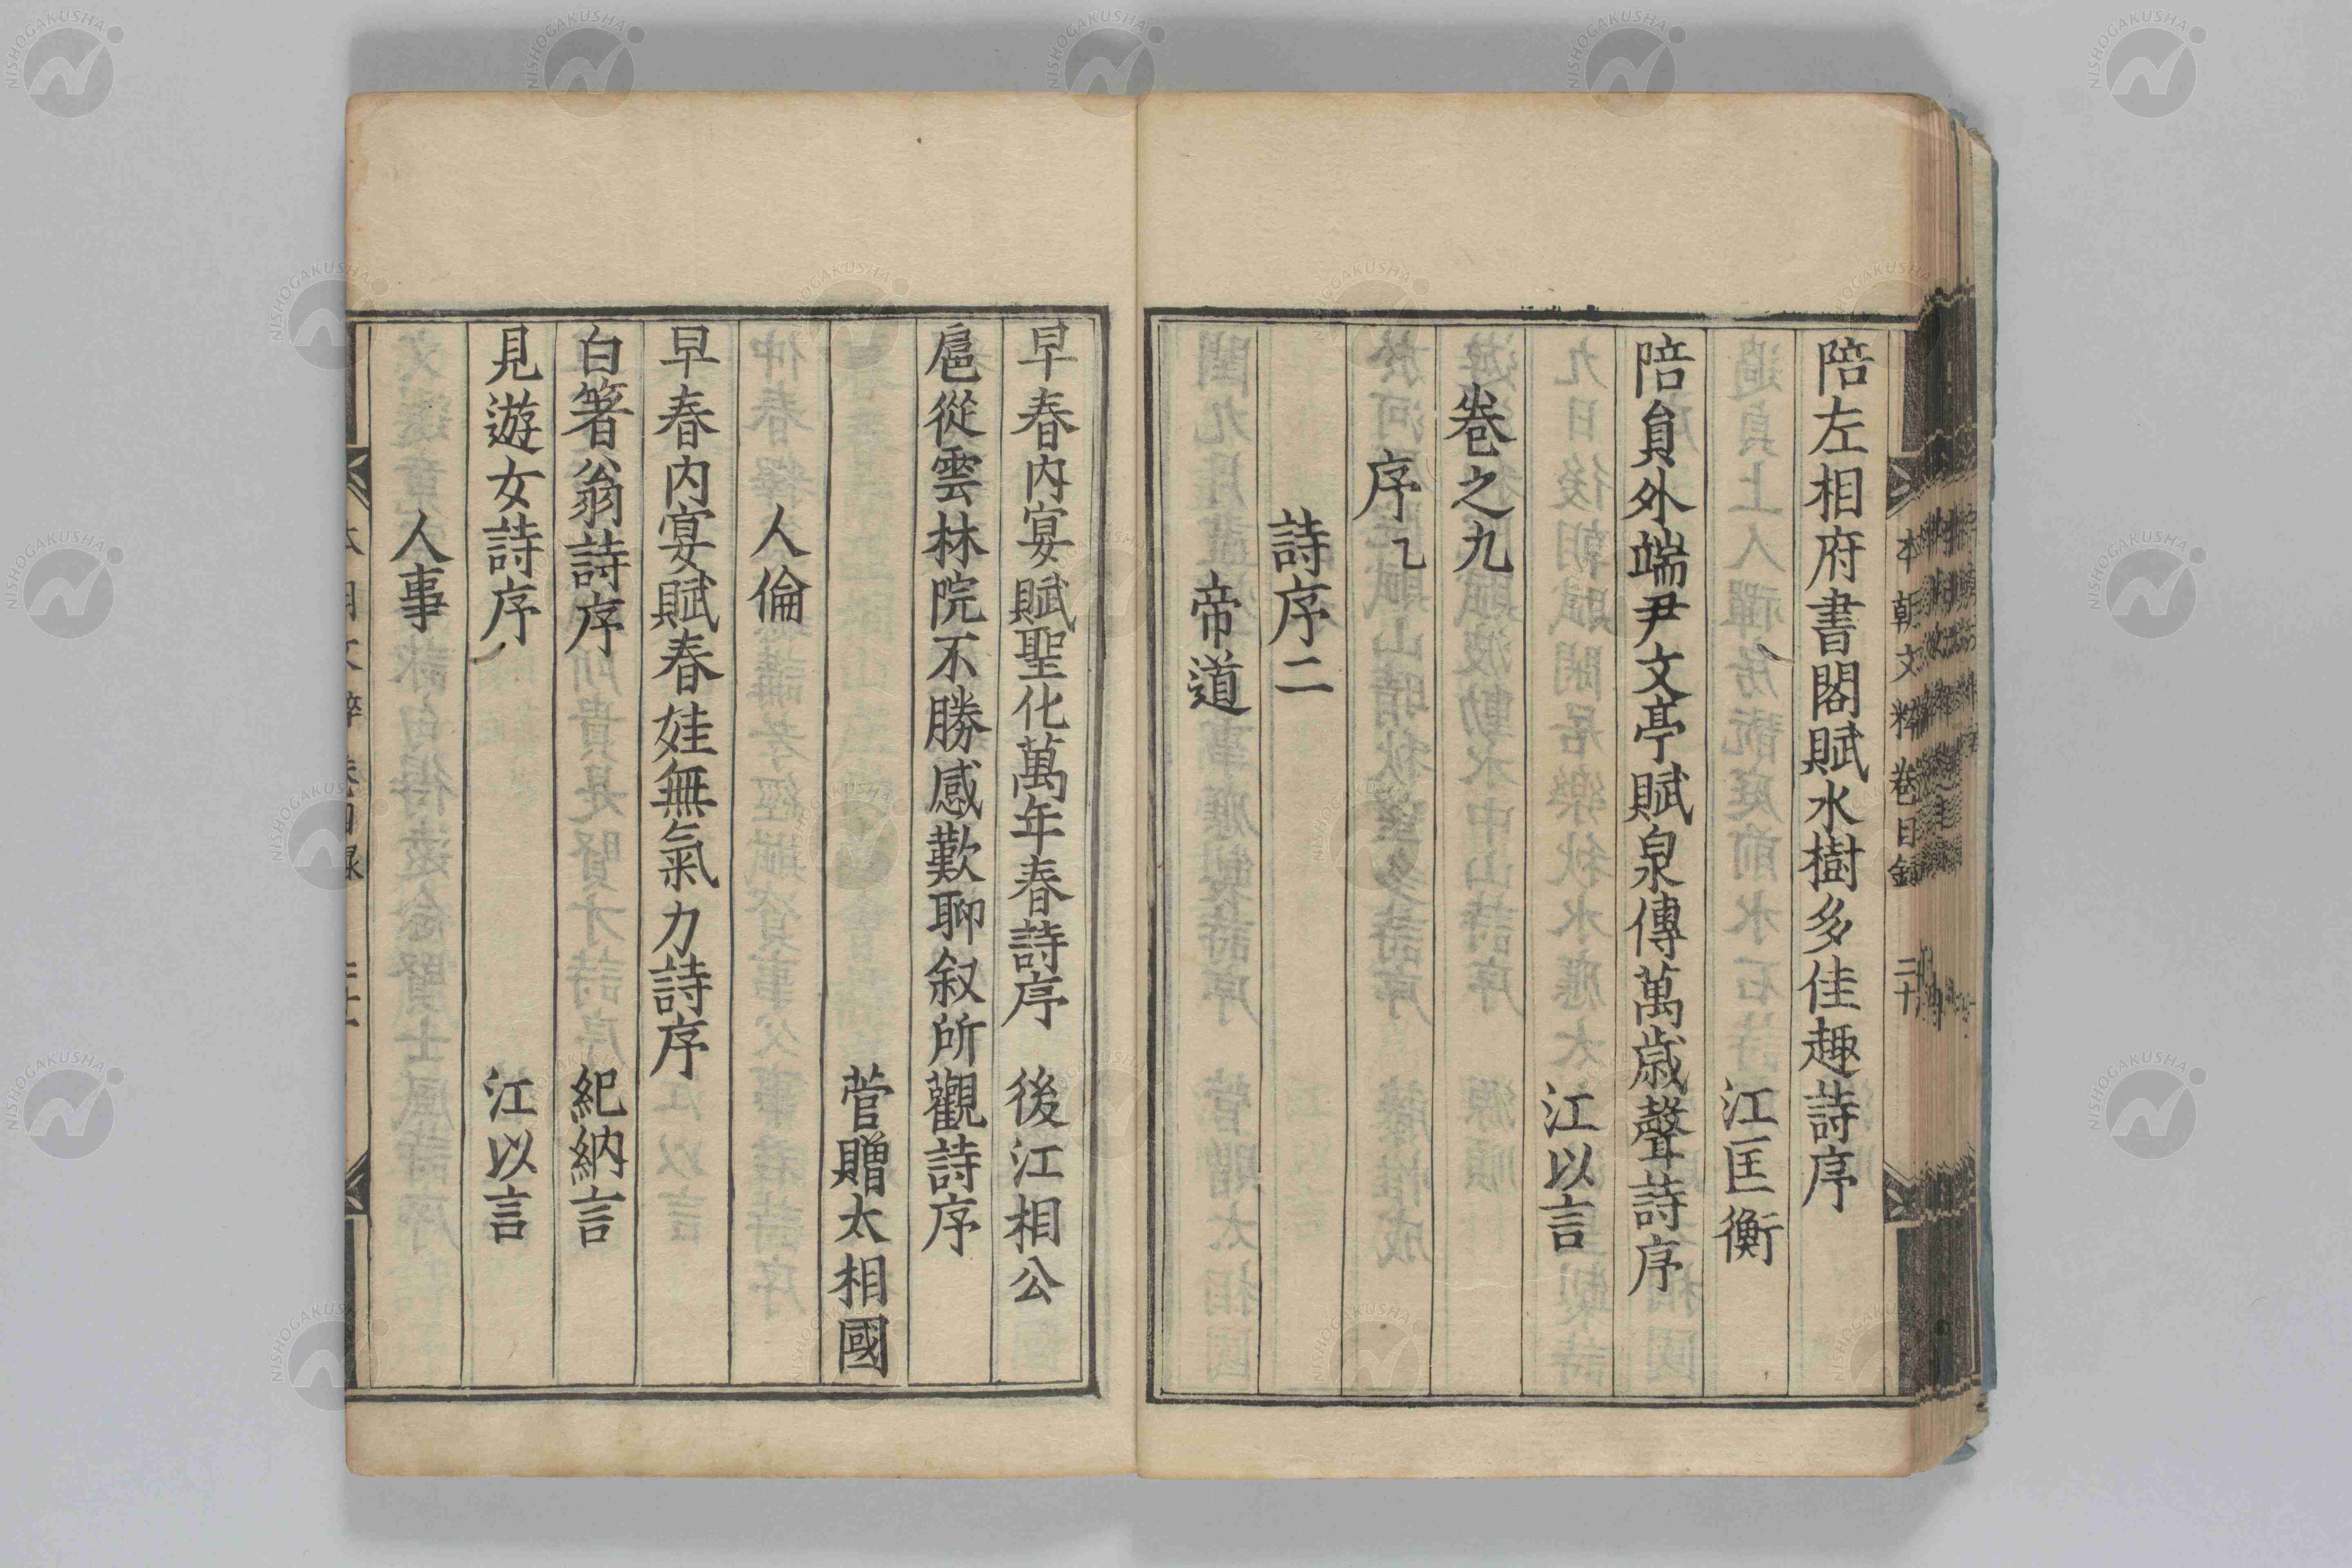 陪左相府書閣賦水樹多佳趣詩序
江匡衡
陪員外端尹文亭賦泉傳萬歳聲詩序
江以言
巻之九
序乙
詩序二
帝道
本朝文粹巻目録 二十
早春内宴賦聖化萬年春詩序 後江相公
扈從雲林院不勝感歎聊叙所觀詩序
菅贈太相國
人倫
早春内宴賦春娃無氣力詩序
白箸翁詩序 紀納言
見遊女詩序 江以言
人事
NISHOGAKUSHA